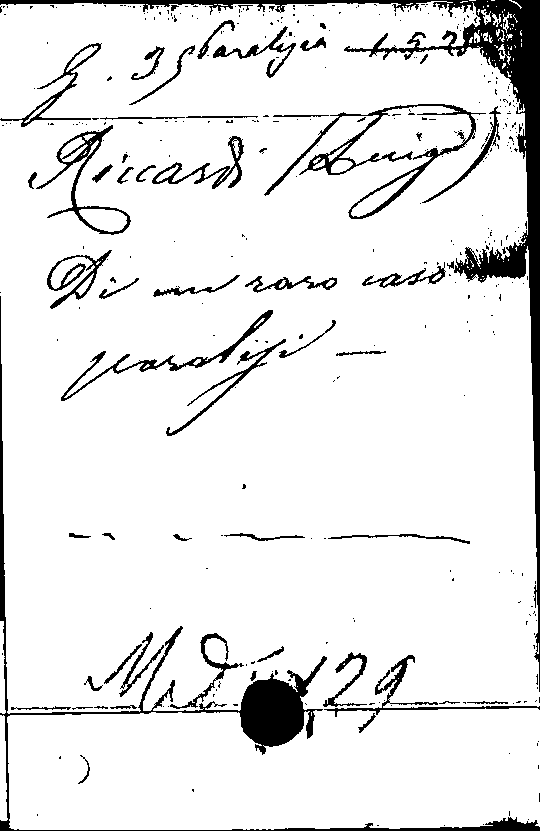 G. 35 Paralisia 1,5,25
Riccardi (Luigi)
Di un raro caso
paralisi —
Med. 129